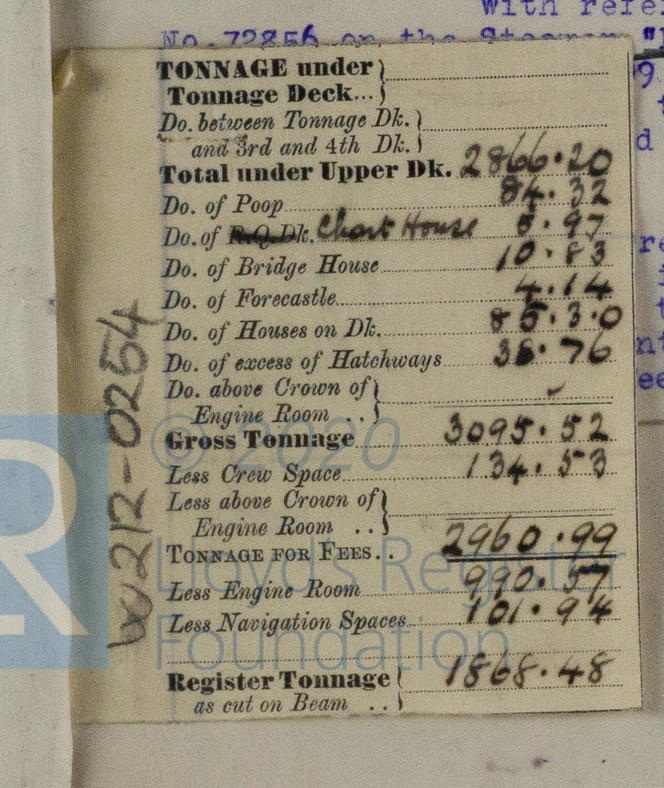 With refe
No. 72856 on the Steamer "
TONNAGE under
Tonnage Deck...
Do. between Tonnage Dk.
and 3rd and 4th Dk.
Total under Upper Dk. 2866.20
Do. of Poop 84.32
Do. of R.Q. Dk. Chart House 5.97
Do. of Bridge House 10.83
Do. of Forecastle 4.14
Do. of Houses on Dk. 85.30
Do. of excess of Hatchways 38.76
Do. above Crown of
Engine Room ..
Gross Tonnage 3095.52
Less Crew Space 134.53
Less above Crown of
Engine Room ..
TONNAGE FOR FEES.. 2960.99
Less Engine Room 990.57
Less Navigation Spaces 101.94
Register Tonnage 1868.48
as cut on Beam ..
W212-0254
© 2020
Lloyd's Register
Foundation